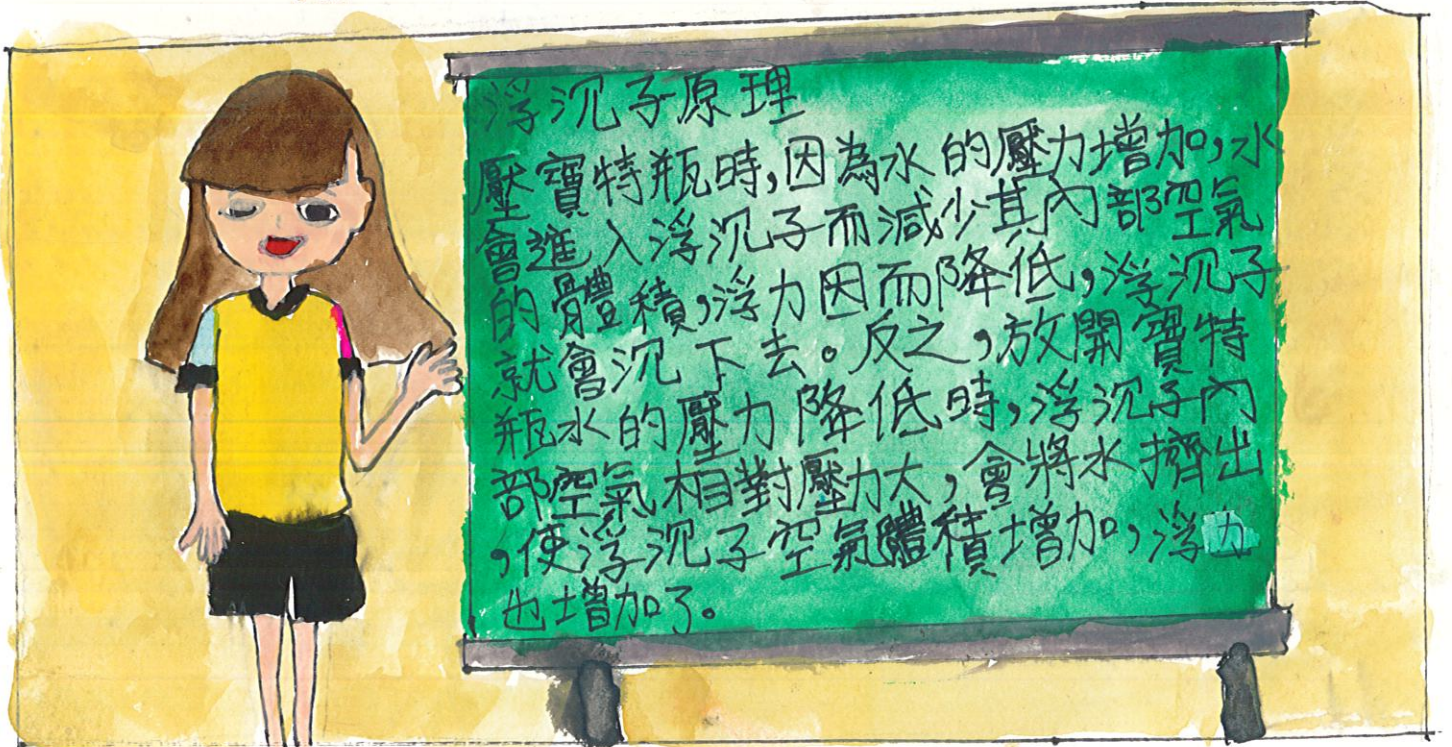 浮沉子原理
壓寶特瓶時,因為水的壓力增加,水
會進入浮沉子而減少其內部空氣
的體積,浮力因而降低,浮沉子
就會沉下去。反之,放開寶特
瓶水的壓力降低時,浮沉子內
部空氣相對壓力大,會將水擠出
,使浮沉子空氣體積增加,浮力
也增加了。